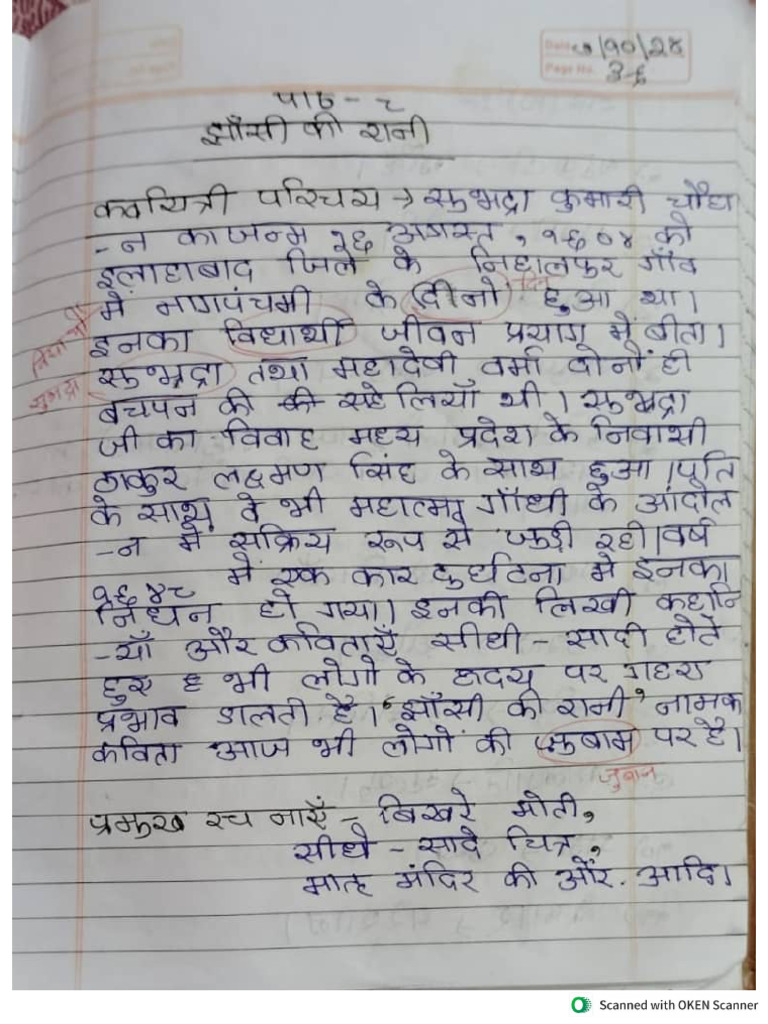 Date ७/१०/२४
Page No. ३६
पाठ - ८
झाँसी की रानी
कवयित्री परिचय → सुभद्रा कुमारी चौहा
-न का जन्म १६ अगस्त, १९०४ को
इलाहाबाद जिले के निहालपुर गाँव
में नागपंचमी के दीनो हुआ था।
दिन
इनका विद्यार्थी जीवन प्रयाग में बीता।
विद्यार्थी
सुभद्रा तथा महादेवी वर्मा दोनों ही
सुभद्रा
बचपन की की सहेलियाँ थी। सुभद्रा
जी का विवाह मध्य प्रदेश के निवासी
ठाकुर लक्ष्मण सिंह के साथ हुआ। पति
के साथ वे भी महात्मा गाँधी के आंदोल
-न में सक्रिय रूप से जुड़ी रही। वर्ष
१९४८ में एक कार दुर्घटना में इनका
निधन हो गया। इनकी लिखी कहानि
-याँ और कविताएँ सीधी - सादी होते
हुए भी लोगो के हृदय पर गहरा
प्रभाव डालती है। 'झाँसी की रानी' नामक
कविता आज भी लोगों की जुबाम पर है।
जुबान
प्रमुख रचनाएँ - बिखरे मोती,
सीधे - सादे चित्र,
मातृ मंदिर की और. आदि।
Scanned with OKEN Scanner